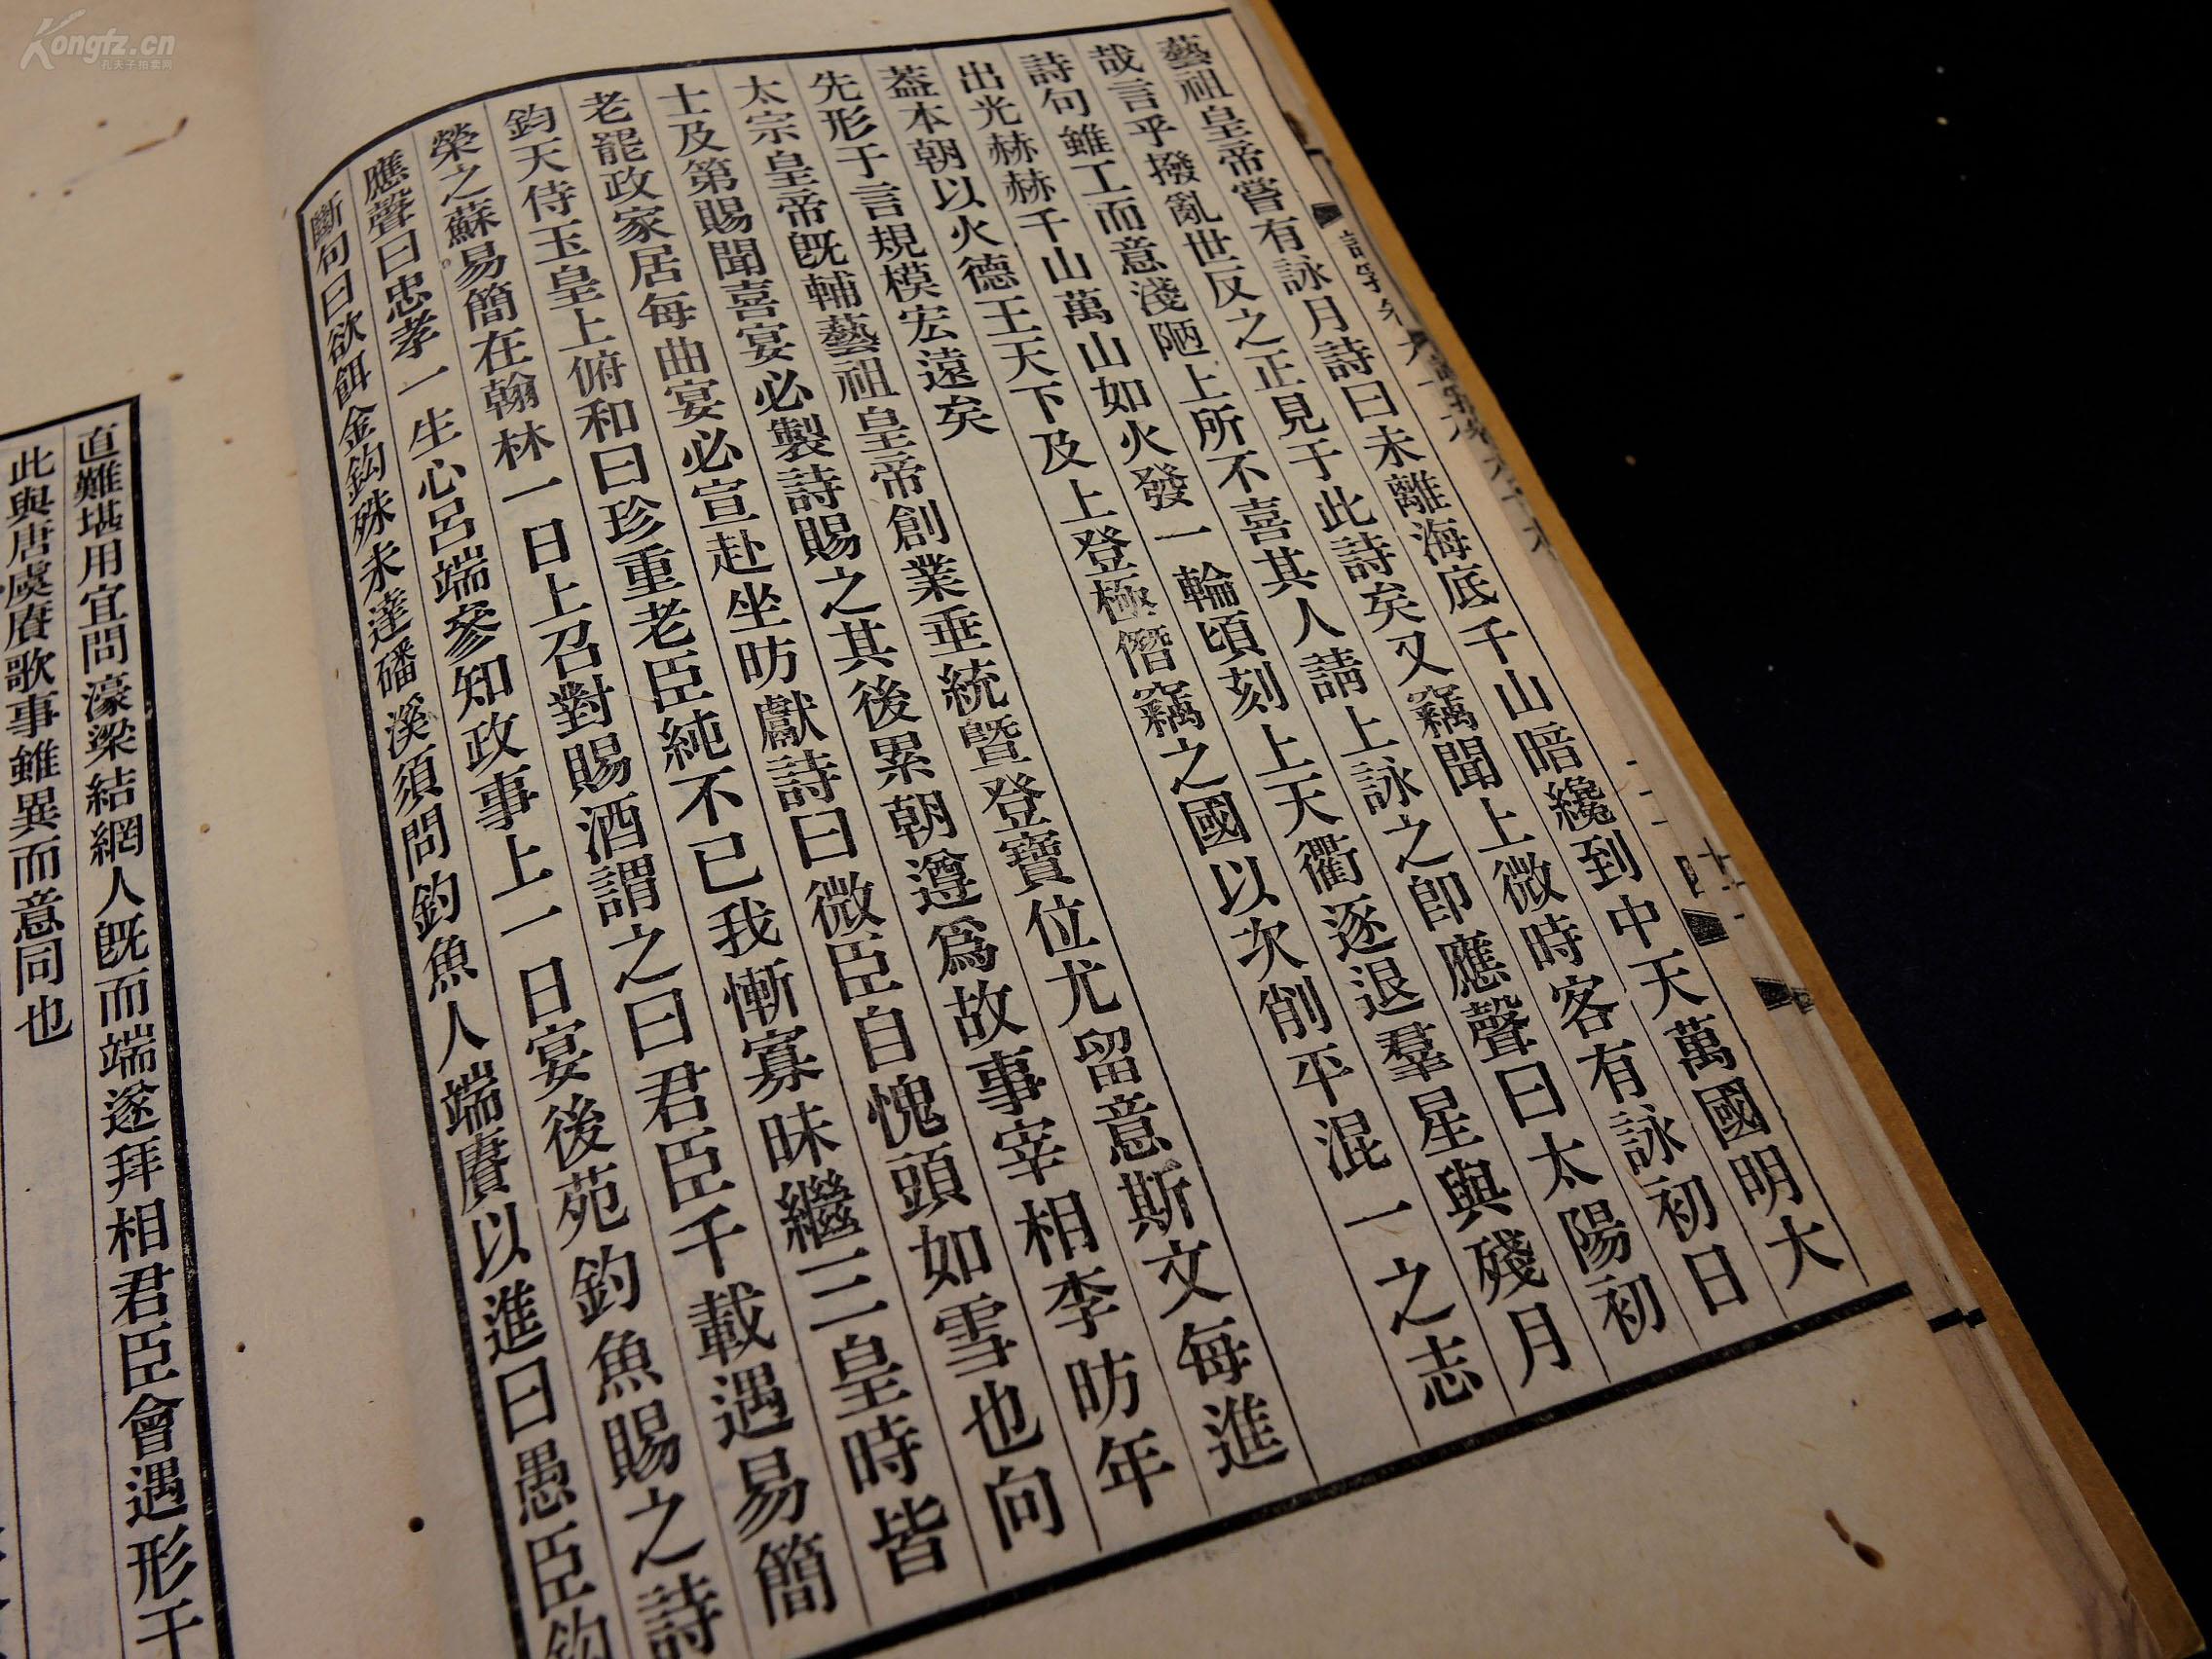 藝祖皇帝嘗有詠月詩曰未離海底千山暗纔到中天萬國明大
哉言乎撥亂世反之正見于此詩矣又竊聞上微時客有詠初日
詩句雖工而意淺陋上所不喜其人請上詠之卽應聲曰太陽初
出光赫赫千山萬山如火發一輪頃刻上天衢逐退羣星與殘月
蓋本朝以火德王天下及上登極僭竊之國以次削平混一之志
先形于言規模宏遠矣
太宗皇帝旣輔藝祖皇帝創業垂統曁登寶位尤留意斯文每進
士及第賜聞喜宴必製詩賜之其後累朝遵爲故事宰相李昉年
老罷政家居每曲宴必宣赴坐昉獻詩曰微臣自愧頭如雪也向
鈞天侍玉皇上俯和曰珍重老臣純不已我慚寡昧繼三皇時皆
榮之蘇易簡在翰林一日上召對賜酒謂之曰君臣千載遇易簡
應聲曰忠孝一生心呂端參知政事上一日宴後苑釣魚賜之詩
斷句曰欲餌金鈎殊未達磻溪須問釣魚人端賡以進曰愚臣鈎
直難堪用宜問濠梁結網人旣而端遂拜相君臣會遇形于
此與唐虞賡歌事雖異而意同也
Kongfz.cn
孔夫子拍卖网